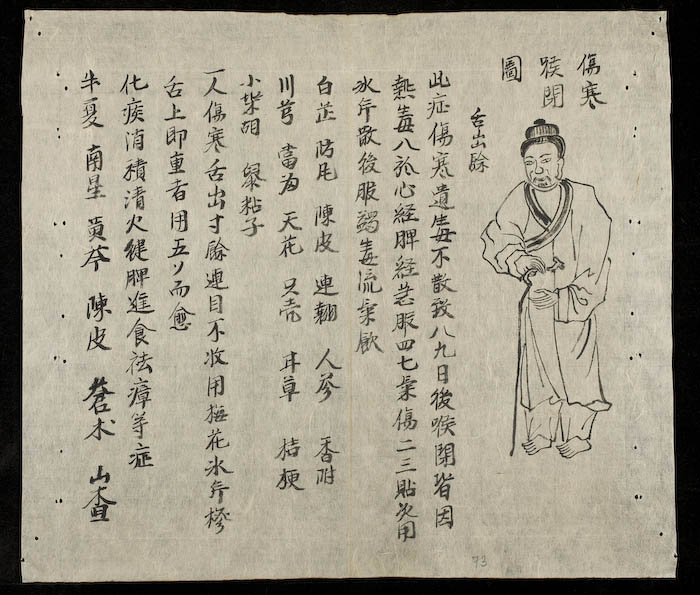 傷寒
喉閉
圖
舌出
此症傷寒遺毒不散致八九日後喉閉皆因
熱毒入於心経脾経急服四七氣傷二三貼次用
氷片散後服蠲毒流氣飲
白芷 防風 陳皮 連翹 人參 香附
川芎 當歸 天花 只壳 甘草 桔梗
小柴胡 鼠粘子
一人傷寒舌出寸餘連日不收用梅花氷片糝
舌上即重者用五而愈
化痰消積清火健脾進食祛瘴等症
半夏 南星 黃芩 陳皮 蒼术 山查
73